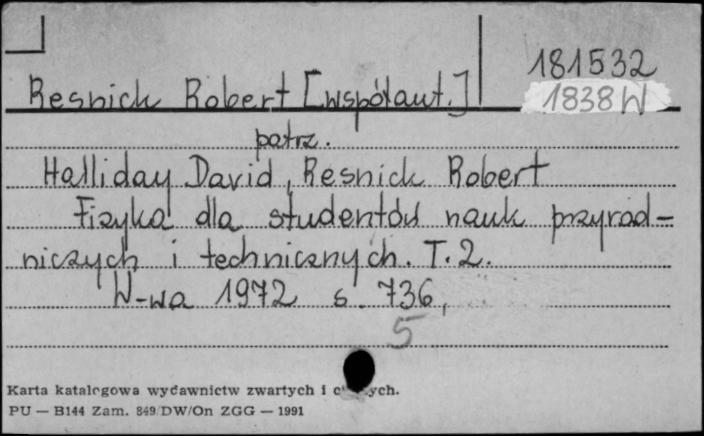 181532
Resnick Robert [współaut.] 1838 W
patrz.
Halliday David, Resnick Robert
Fizyka dla studentów nauk przyrod-
niczych i technicznych. T. 2.
W-wa 1972 s. 736,
5
Karta katalogowa wydawnictw zwartych i
PU — B144 Zam. 849/DW/On ZGG — 1991